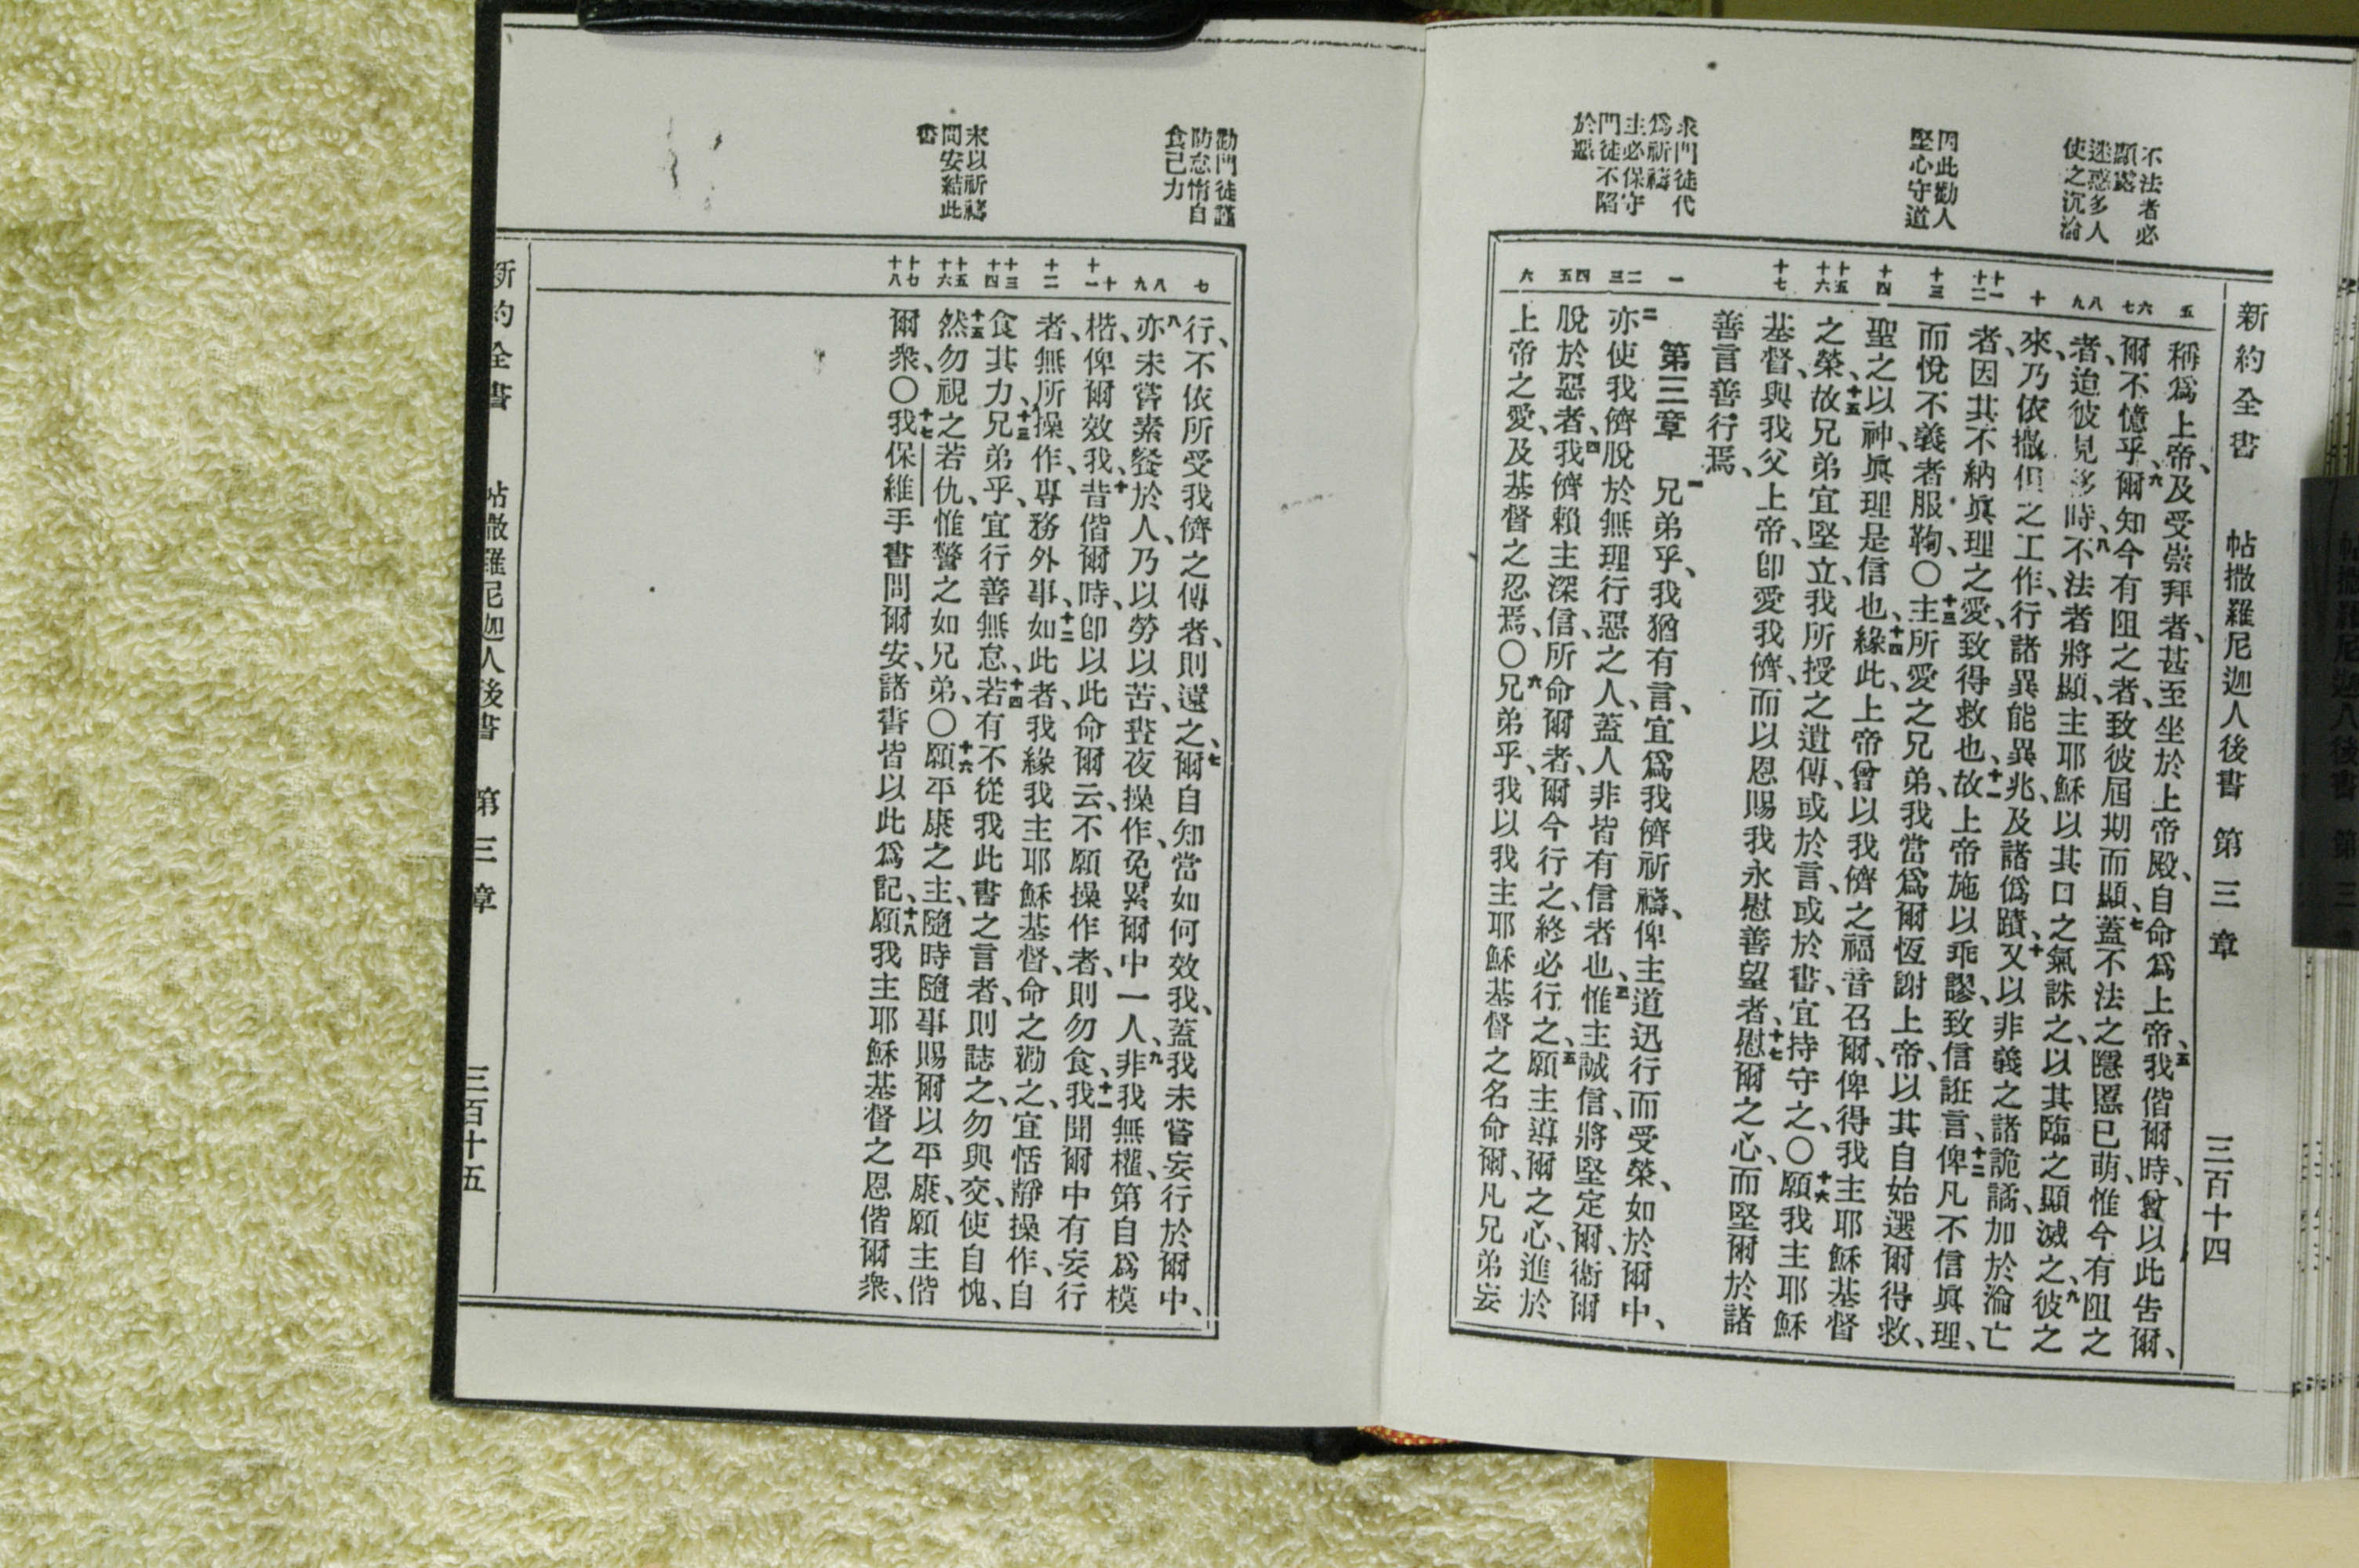 新約全書 帖撒羅尼迦人後書 第三章 三百十四
不法者必
顯露
迷惑多人
使之沉淪
因此勸人
堅心守道
求門徒代
爲祈禱
主必保守
門徒不陷
於惡
五
六
七
八
九
十
十一
十二
十三
十四
十五
十六
十七
一
二
三
四
五
六
稱爲上帝、及受崇拜者、甚至坐於上帝殿、自命爲上帝、五我偕爾時、曾以此告爾、
爾不憶乎、六爾知今有阻之者、致彼屆期而顯、七蓋不法之隱慝已萌、惟今有阻之
者、迨彼見移時、八不法者將顯、主耶穌以其口之氣誅之、以其臨之顯滅之、九彼之
來、乃依撒但之工作、行諸異能異兆、及諸僞蹟、十又以非義之諸詭譎、加於淪亡
者、因其不納眞理之愛、致得救也、十一故上帝施以乖謬、致信誑言、十二俾凡不信眞理、
而悅不義者服鞫〇十三主所愛之兄弟、我當爲爾恆謝上帝、以其自始選爾得救、
聖之以神、眞理是信也、十四緣此上帝曾以我儕之福音召爾、俾得我主耶穌基督
之榮、十五故兄弟宜堅立、我所授之遺傳、或於言、或於書、宜持守之、〇十六願我主耶穌
基督、與我父上帝、卽愛我儕、而以恩賜我永慰善望者、十七慰爾之心、而堅爾於諸
善言善行焉、
第三章 一兄弟乎、我猶有言、宜爲我儕祈禱、俾主道迅行而受榮、如於爾中、
二亦使我儕脫於無理行惡之人、蓋人非皆有信者也、三惟主誠信、將堅定爾、衞爾
脫於惡者、四我儕賴主深信、所命爾者、爾今行之、終必行之、五願主導爾之心、進於
上帝之愛、及基督之忍焉、〇六兄弟乎、我以我主耶穌基督之名命爾、凡兄弟妄
勸門徒謹
防怠惰自
食己力
末以祈禱
問安結此
書
七
八
九
十
十一
十二
十三
十四
十五
十六
十七
十八
行、不依所受我儕之傳者、則遠之、七爾自知當如何效我、蓋我未嘗妄行於爾中、
八亦未嘗素餐於人、乃以勞以苦、晝夜操作、免累爾中一人、九非我無權、第自爲模
楷、俾爾效我、十昔偕爾時、卽以此命爾云、不願操作者、則勿食、十一我聞爾中有妄行
者、無所操作、專務外事、十二如此者、我緣我主耶穌基督、命之勸之、宜恬靜操作、自
食其力、十三兄弟乎、宜行善無怠、十四若有不從我此書之言者、則誌之、勿與交、使自愧、
十五然勿視之若仇、惟警之如兄弟、〇十六願平康之主、隨時隨事賜爾以平康、願主偕
爾衆、〇十七我保維手書問爾安、諸書皆以此爲記、十八願我主耶穌基督之恩偕爾衆、
新約全書 帖撒羅尼迦人後書 第三章 三百十五